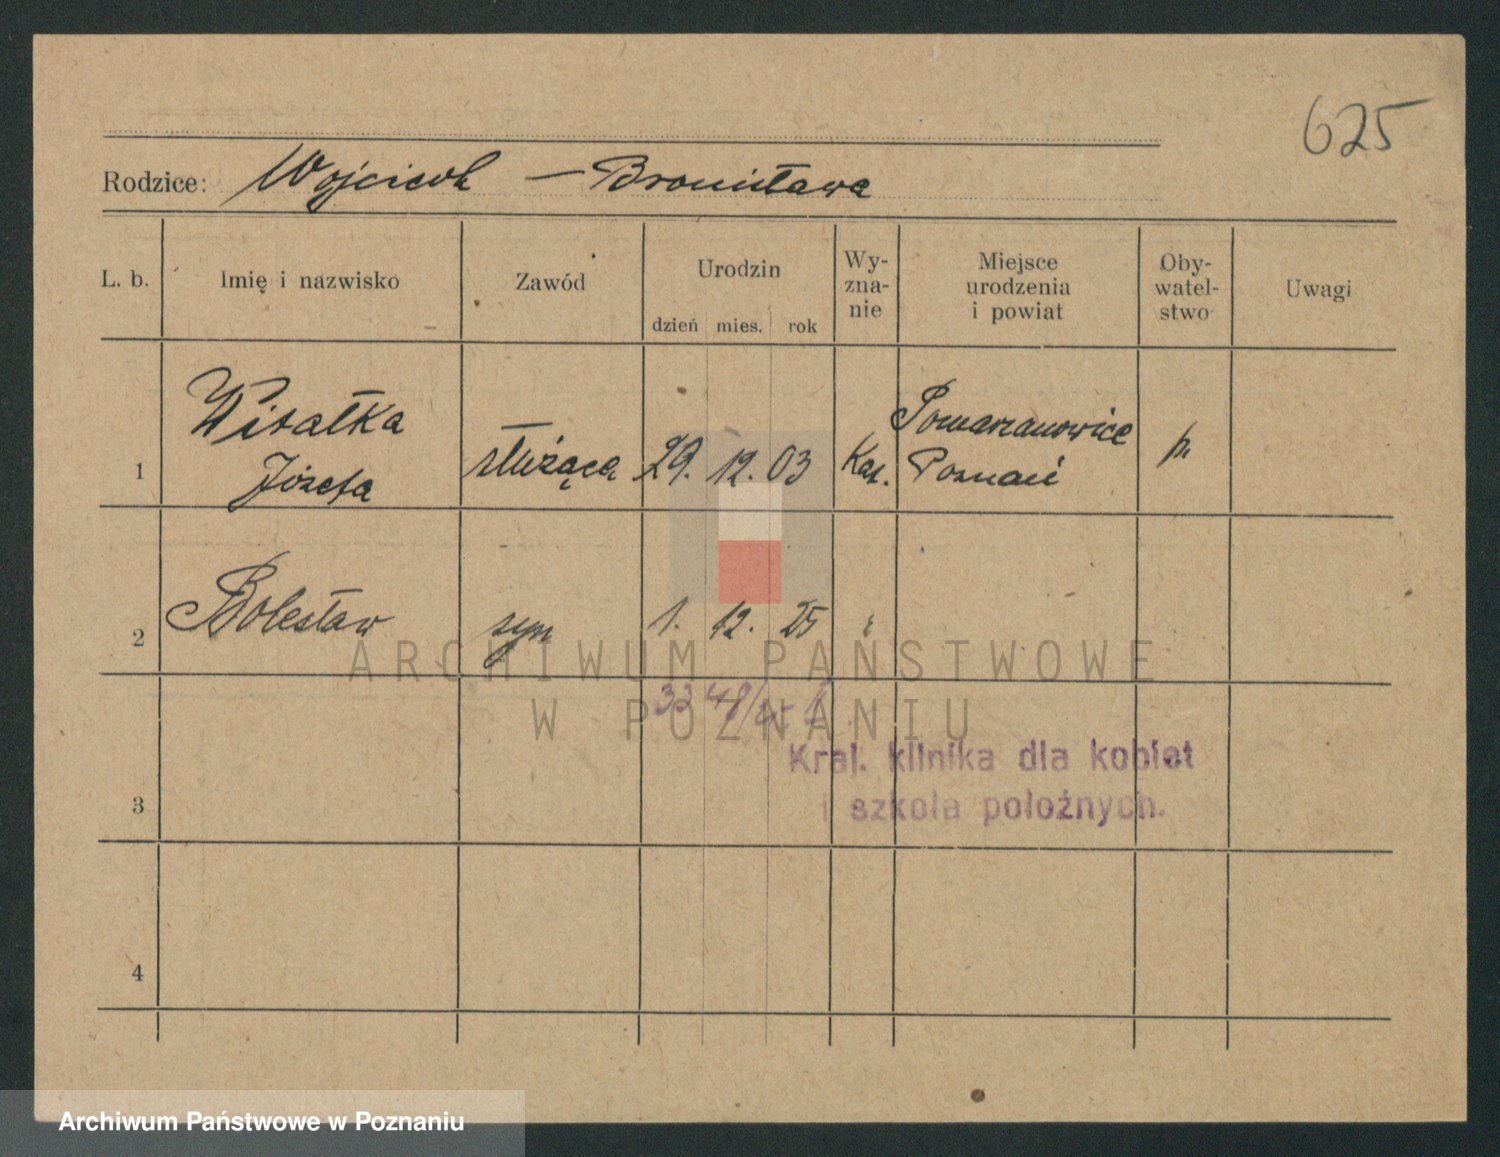 625
Rodzice: Wojciech — Bronisława
L. b. Imię i nazwisko Zawód Urodzin dzień mies. rok Wy-zna-nie Miejsce urodzenia i powiat Oby-watel-stwo Uwagi
1 Witałka Józefa służąca 29. 12. 03 Kat. Pomarzanowice Poznań p.
2 Bolesław syn 1. 12. 25 "
3348/
Kraj. klinika dla kobiet
i szkoła położnych.
3
4
ARCHIWUM PAŃSTWOWE
W POZNANIU
Archiwum Państwowe w Poznaniu